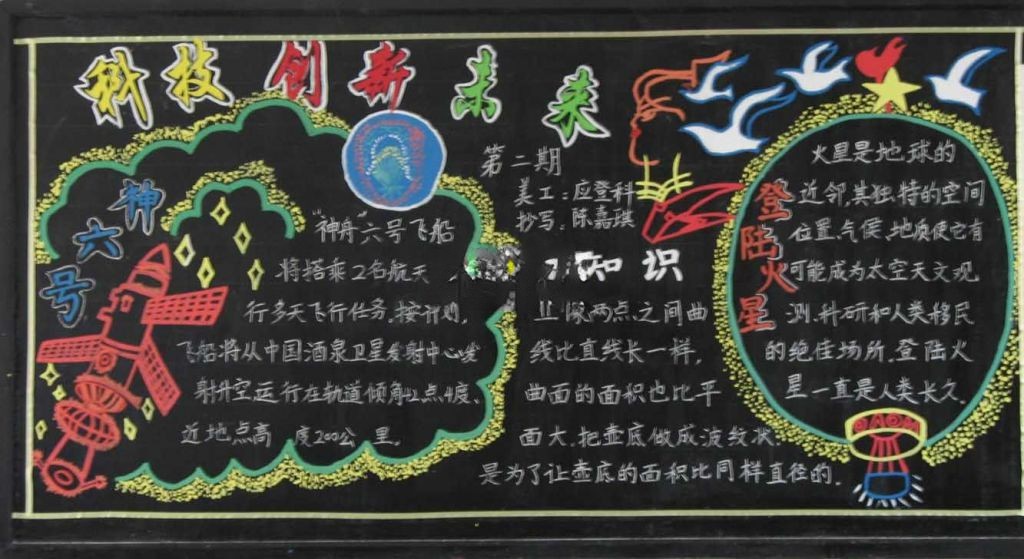 科技创新未来
神六号
"神舟"六号飞船
将搭乘2名航天
行多天飞行任务,按计划,
飞船将从中国酒泉卫星发射中心发
射升空运行在轨道倾角42点4度、
近地点高 度200公里.
第二期
美工:应登科
抄写.陈嘉琪
知识
两点之间曲
线比直线长一样,
曲面的面积也比平
面大.把壶底做成波纹状
是为了让壶底的面积比同样直径的.
登陆火星
火星是地球的
近邻,其独特的空间
位置,气侯,地质使它有
可能成为太空天文观
测.科研和人类移民
的绝佳场所.登陆火
星一直是人类长久.